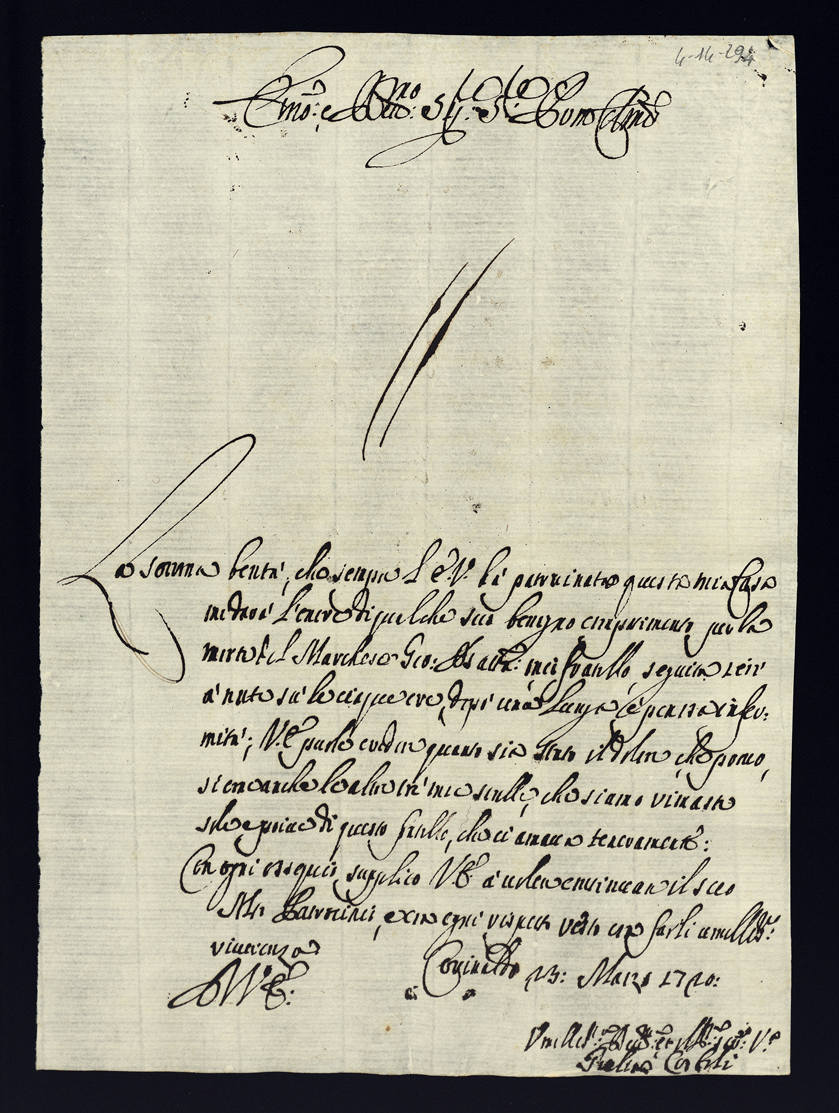 4-14-294
Em̃o: e Reu.mo Sig: S: Pron Col.mo
La somma bontà, che sempre l'E.V. hà patrocinata questa mia Casa
mi darà l'onore di qualche suo benigno compatimento per la
morte del Marchese Gio: Batta: mio fratello, seguita ieri
à notte sù le cinque ore, dopò una lunga, e penosa infer:
mità; V.E. può credere quanto sia stato il dolore, che provo,
sì come anche le altre trè mie sorelle, che siamo rimaste
sole, e prive di questo fratello, che ci amava teneramente:
Con ogni ossequio supplico V.E. à voler continuare il suo
Patrocinio, e con ogni rispetto resto con farli umiliss.ma
riverenza
D. V. E.:
Corinaldo 13: Marzo 1720:
Umiliss.ma
Giulia